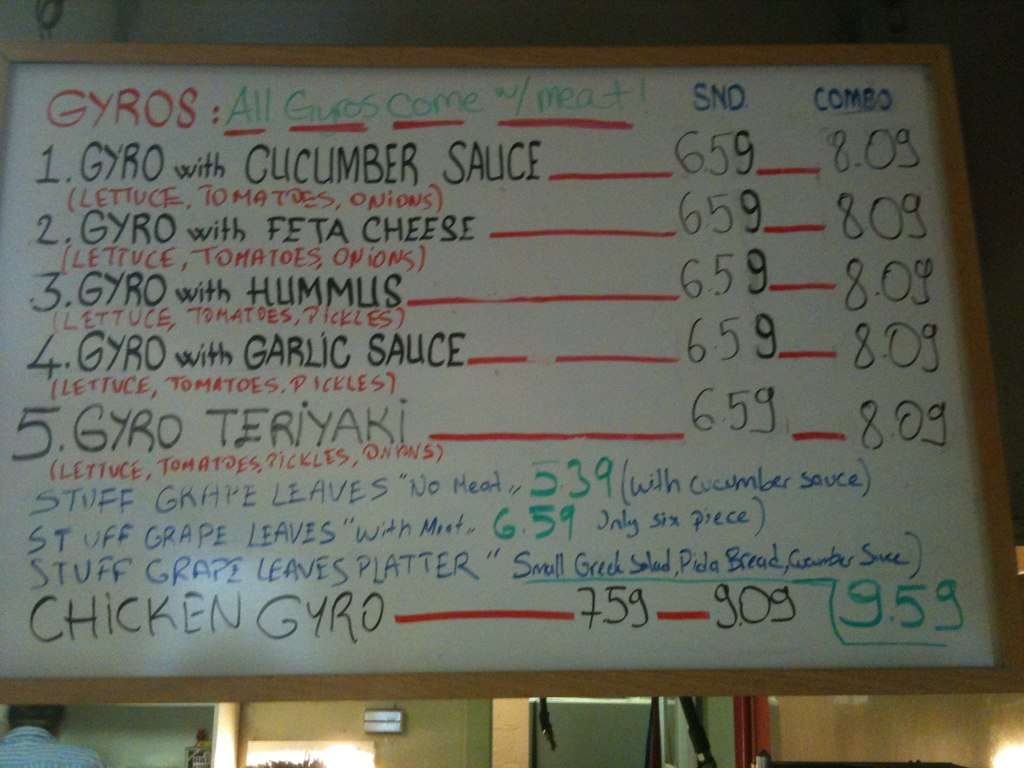 GYROS: All Gyros come w/ meat! SND COMBO
1. GYRO with CUCUMBER SAUCE 6.59 8.09
(LETTUCE, TOMATOES, ONIONS)
2. GYRO with FETA CHEESE 6.59 8.09
(LETTUCE, TOMATOES, ONIONS)
3. GYRO with HUMMUS 6.59 8.09
(LETTUCE, TOMATOES, PICKLES)
4. GYRO with GARLIC SAUCE 6.59 8.09
(LETTUCE, TOMATOES, PICKLES)
5. GYRO TERIYAKI 6.59 8.09
(LETTUCE, TOMATOES, PICKLES, ONIONS)
STUFF GRAPE LEAVES "No Meat" 5.39 (with cucumber sauce)
STUFF GRAPE LEAVES "with Meat" 6.59 Only six piece)
STUFF GRAPE LEAVES PLATTER "Small Greek Salad, Pida Bread, Cucumber Sauce)
CHICKEN GYRO 7.59 9.09 9.59